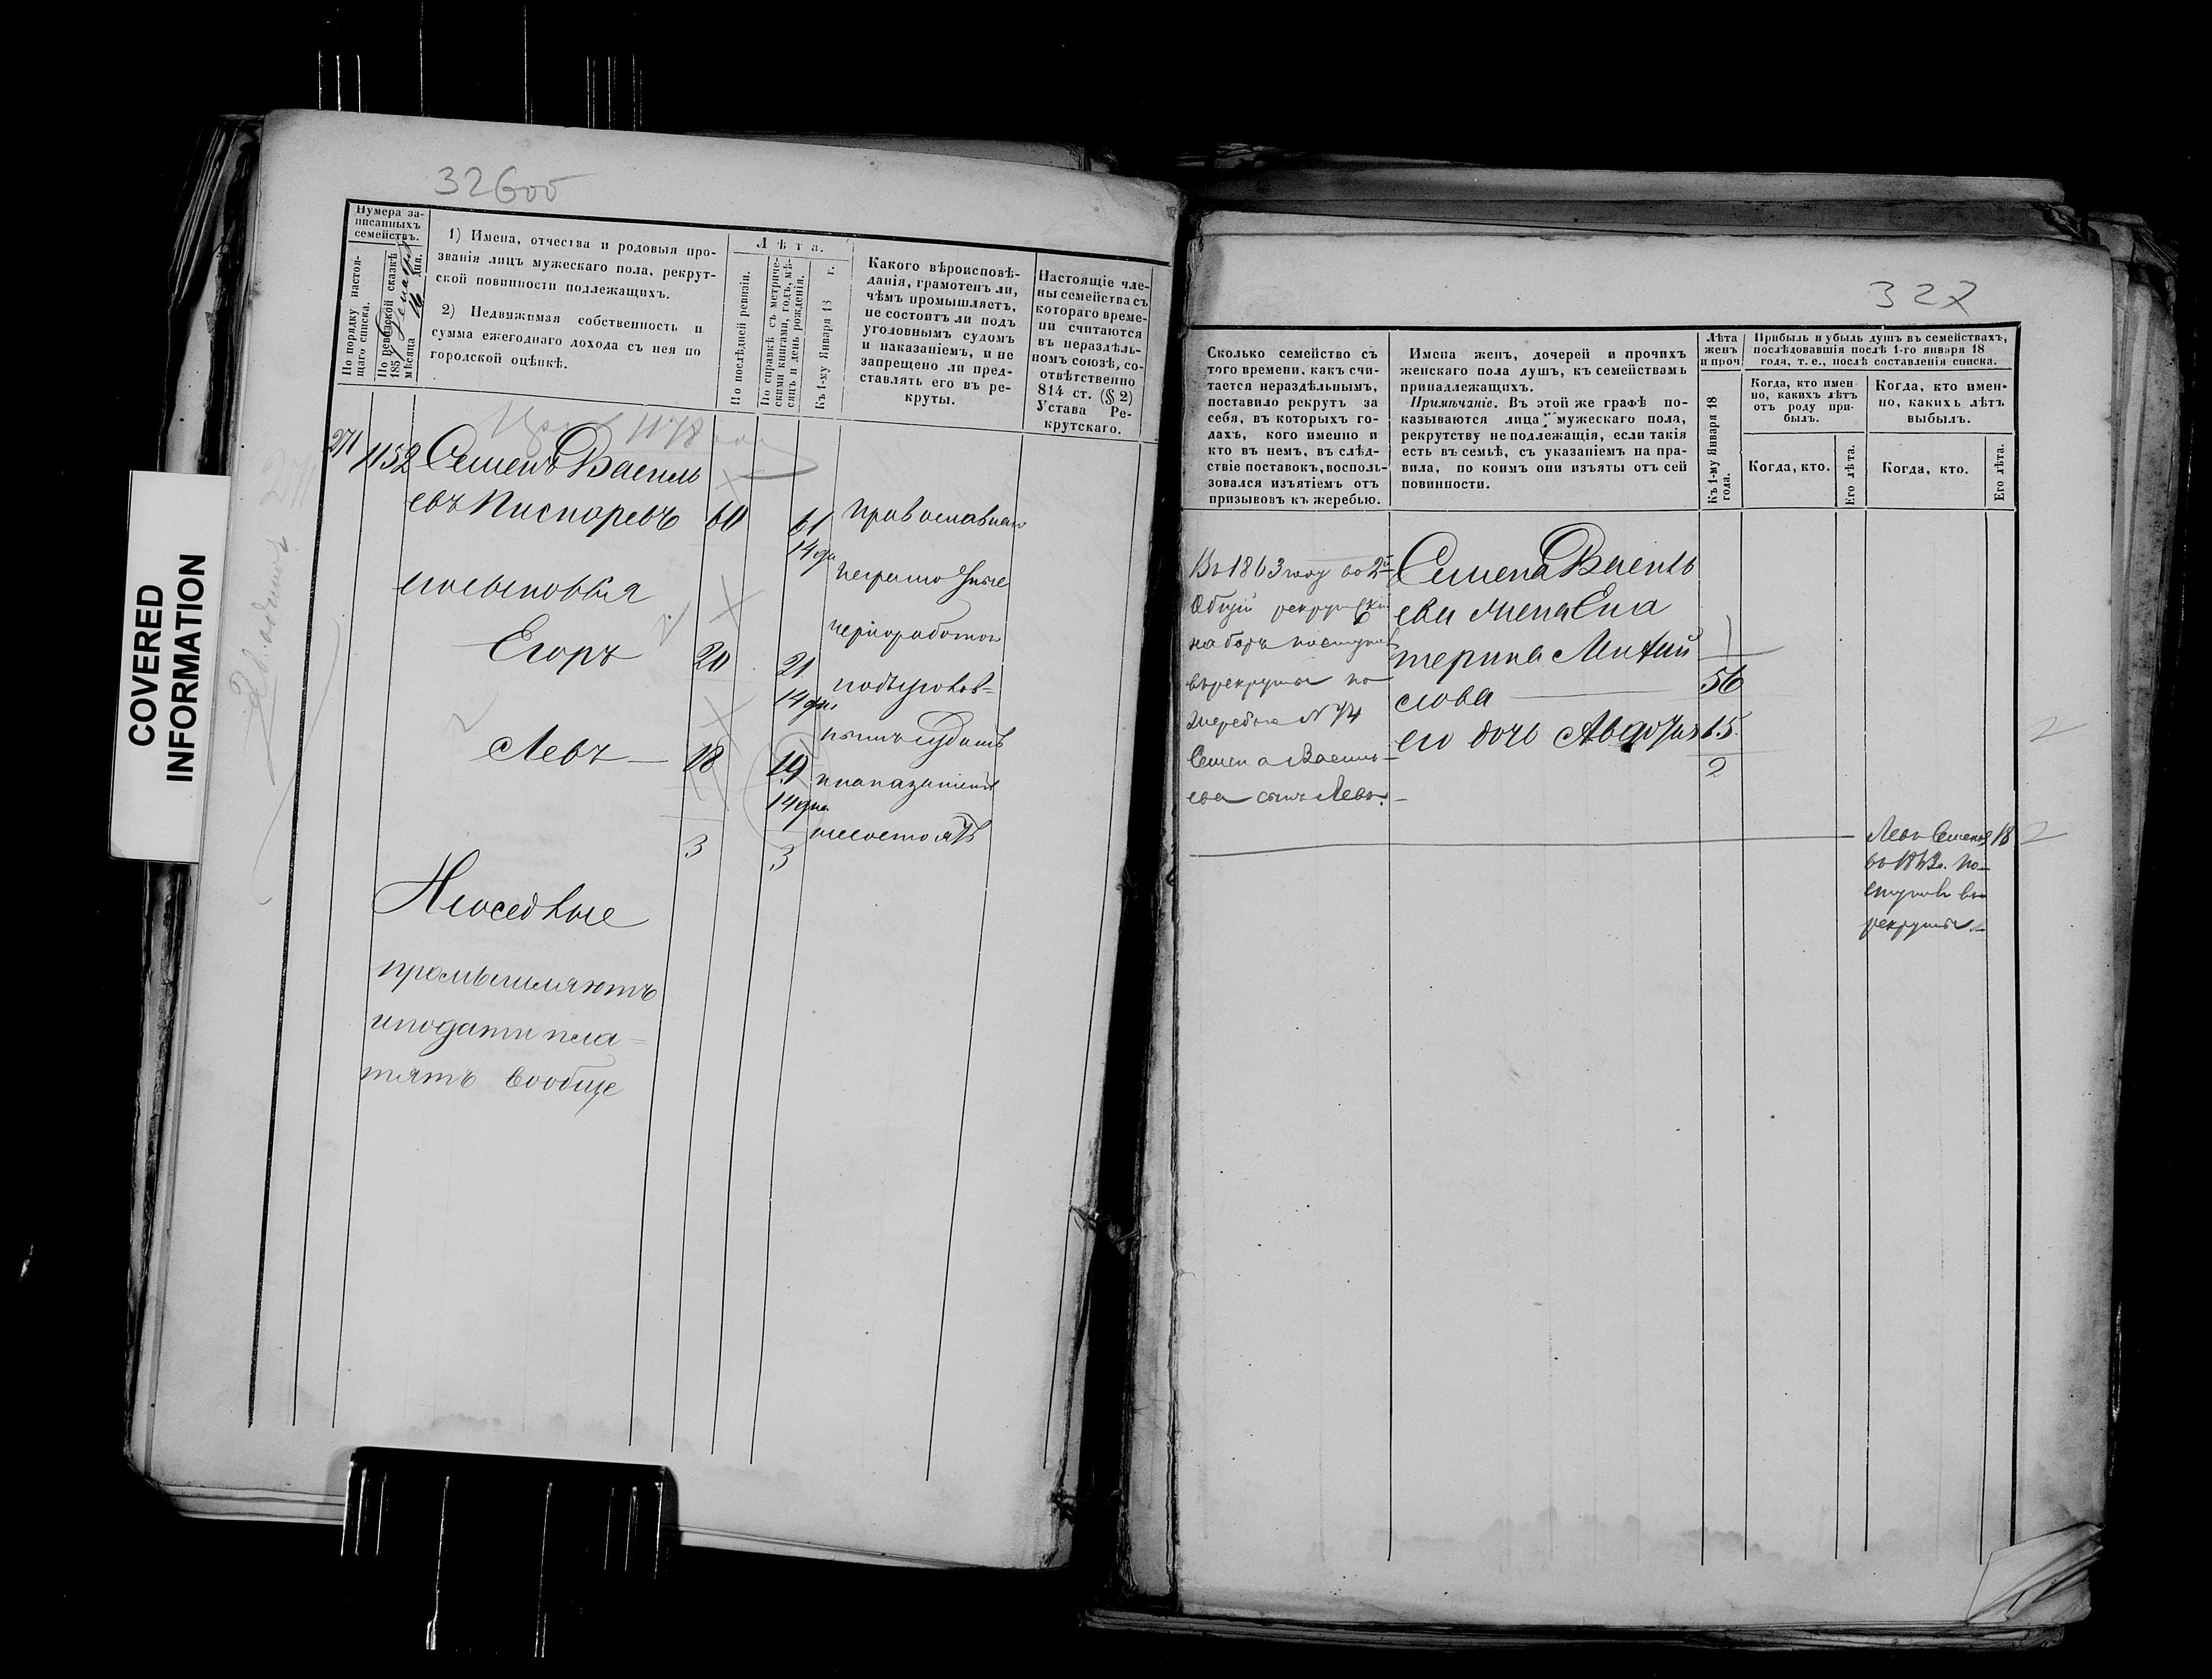 COVERED
INFORMATION
326об
Нумера за-
писанныхъ
семействъ.
По порядку настоя-
щаго списка.
По ревизской сказкѣ
185
мѣсяца 16 дня.
1) Имена, отчества и родовыя про-
званія лицъ мужескаго пола, рекрут-
ской повинности подлежащихъ.
2) Недвижимая собственность и
сумма ежегоднаго дохода съ нея по
городской оцѣнкѣ.
Лѣта.
По послѣдней ревизіи.
По справкѣ съ метриче-
скими книгами, годъ, мѣ-
сяцъ и день рожденія.
Къ 1-му Января 18 г.
Какого вѣроисповѣ-
данія, грамотенъ ли,
чѣмъ промышляетъ,
не состоитъ ли подъ
уголовнымъ судомъ
и наказаніемъ, и не
запрещено ли пред-
ставлять его въ ре-
круты.
Настоящіе чле-
ны семейства съ
котораго време-
ни считаются
въ нераздѣль-
номъ союзѣ, со-
отвѣтственно
814 ст. (§ 2)
Устава Ре-
крутскаго.
1178
271 1152 Семенъ Василь
евъ 60 61 Православнаго
14 дн
неграмотные
его сыновья
чернорабочіи
Егоръ 20 21
14 дн. подъуголов-
нымъ судомъ
Левъ 18 19 и наказаніемъ
14 дня
несостоятъ
3 3
Неоседлые
промышляютъ
и подати пла-
тятъ вообще
327
Сколько семейство съ
того времени, какъ счи-
тается нераздѣльнымъ,
поставило рекрутъ за
себя, въ которыхъ го-
дахъ, кого именно и
кто въ немъ, въ слѣд-
ствіе поставокъ, восполь-
зовался изъятіемъ отъ
призывовъ къ жеребью.
Имена женъ, дочерей и прочихъ
женскаго пола душъ, къ семействамъ
принадлежащихъ.
Примѣчаніе. Въ этой же графѣ по-
казываются лица мужескаго пола,
рекрутству не подлежащія, если такія
есть въ семьѣ, съ указаніемъ на пра-
вила, по коимъ они изъяты отъ сей
повинности.
Лѣта
женъ
и проч.
Къ 1-му Января 18
года.
Прибыль и убыль душъ въ семействахъ,
послѣдовавшія послѣ 1-го января 18
года, т. е., послѣ составленія списка.
Когда, кто имен-
но, какихъ лѣтъ
отъ роду при-
былъ.
Когда, кто имен-
но, какихъ лѣтъ
выбылъ.
Когда, кто.
Его лѣта.
Когда, кто.
Его лѣта.
Въ 1863 году во 2й
Общій рекрутскій
наборъ поступилъ
въ рекруты по
жеребью № 74
Семена Василь-
ева сынъ Левъ.
Семена Василь
ева жена Ека
терина Михай
слова 56
его дочь Авдотья 15.
2
Левъ Семеновъ 18
въ 1863г. по-
ступилъ въ
рекруты
2
2